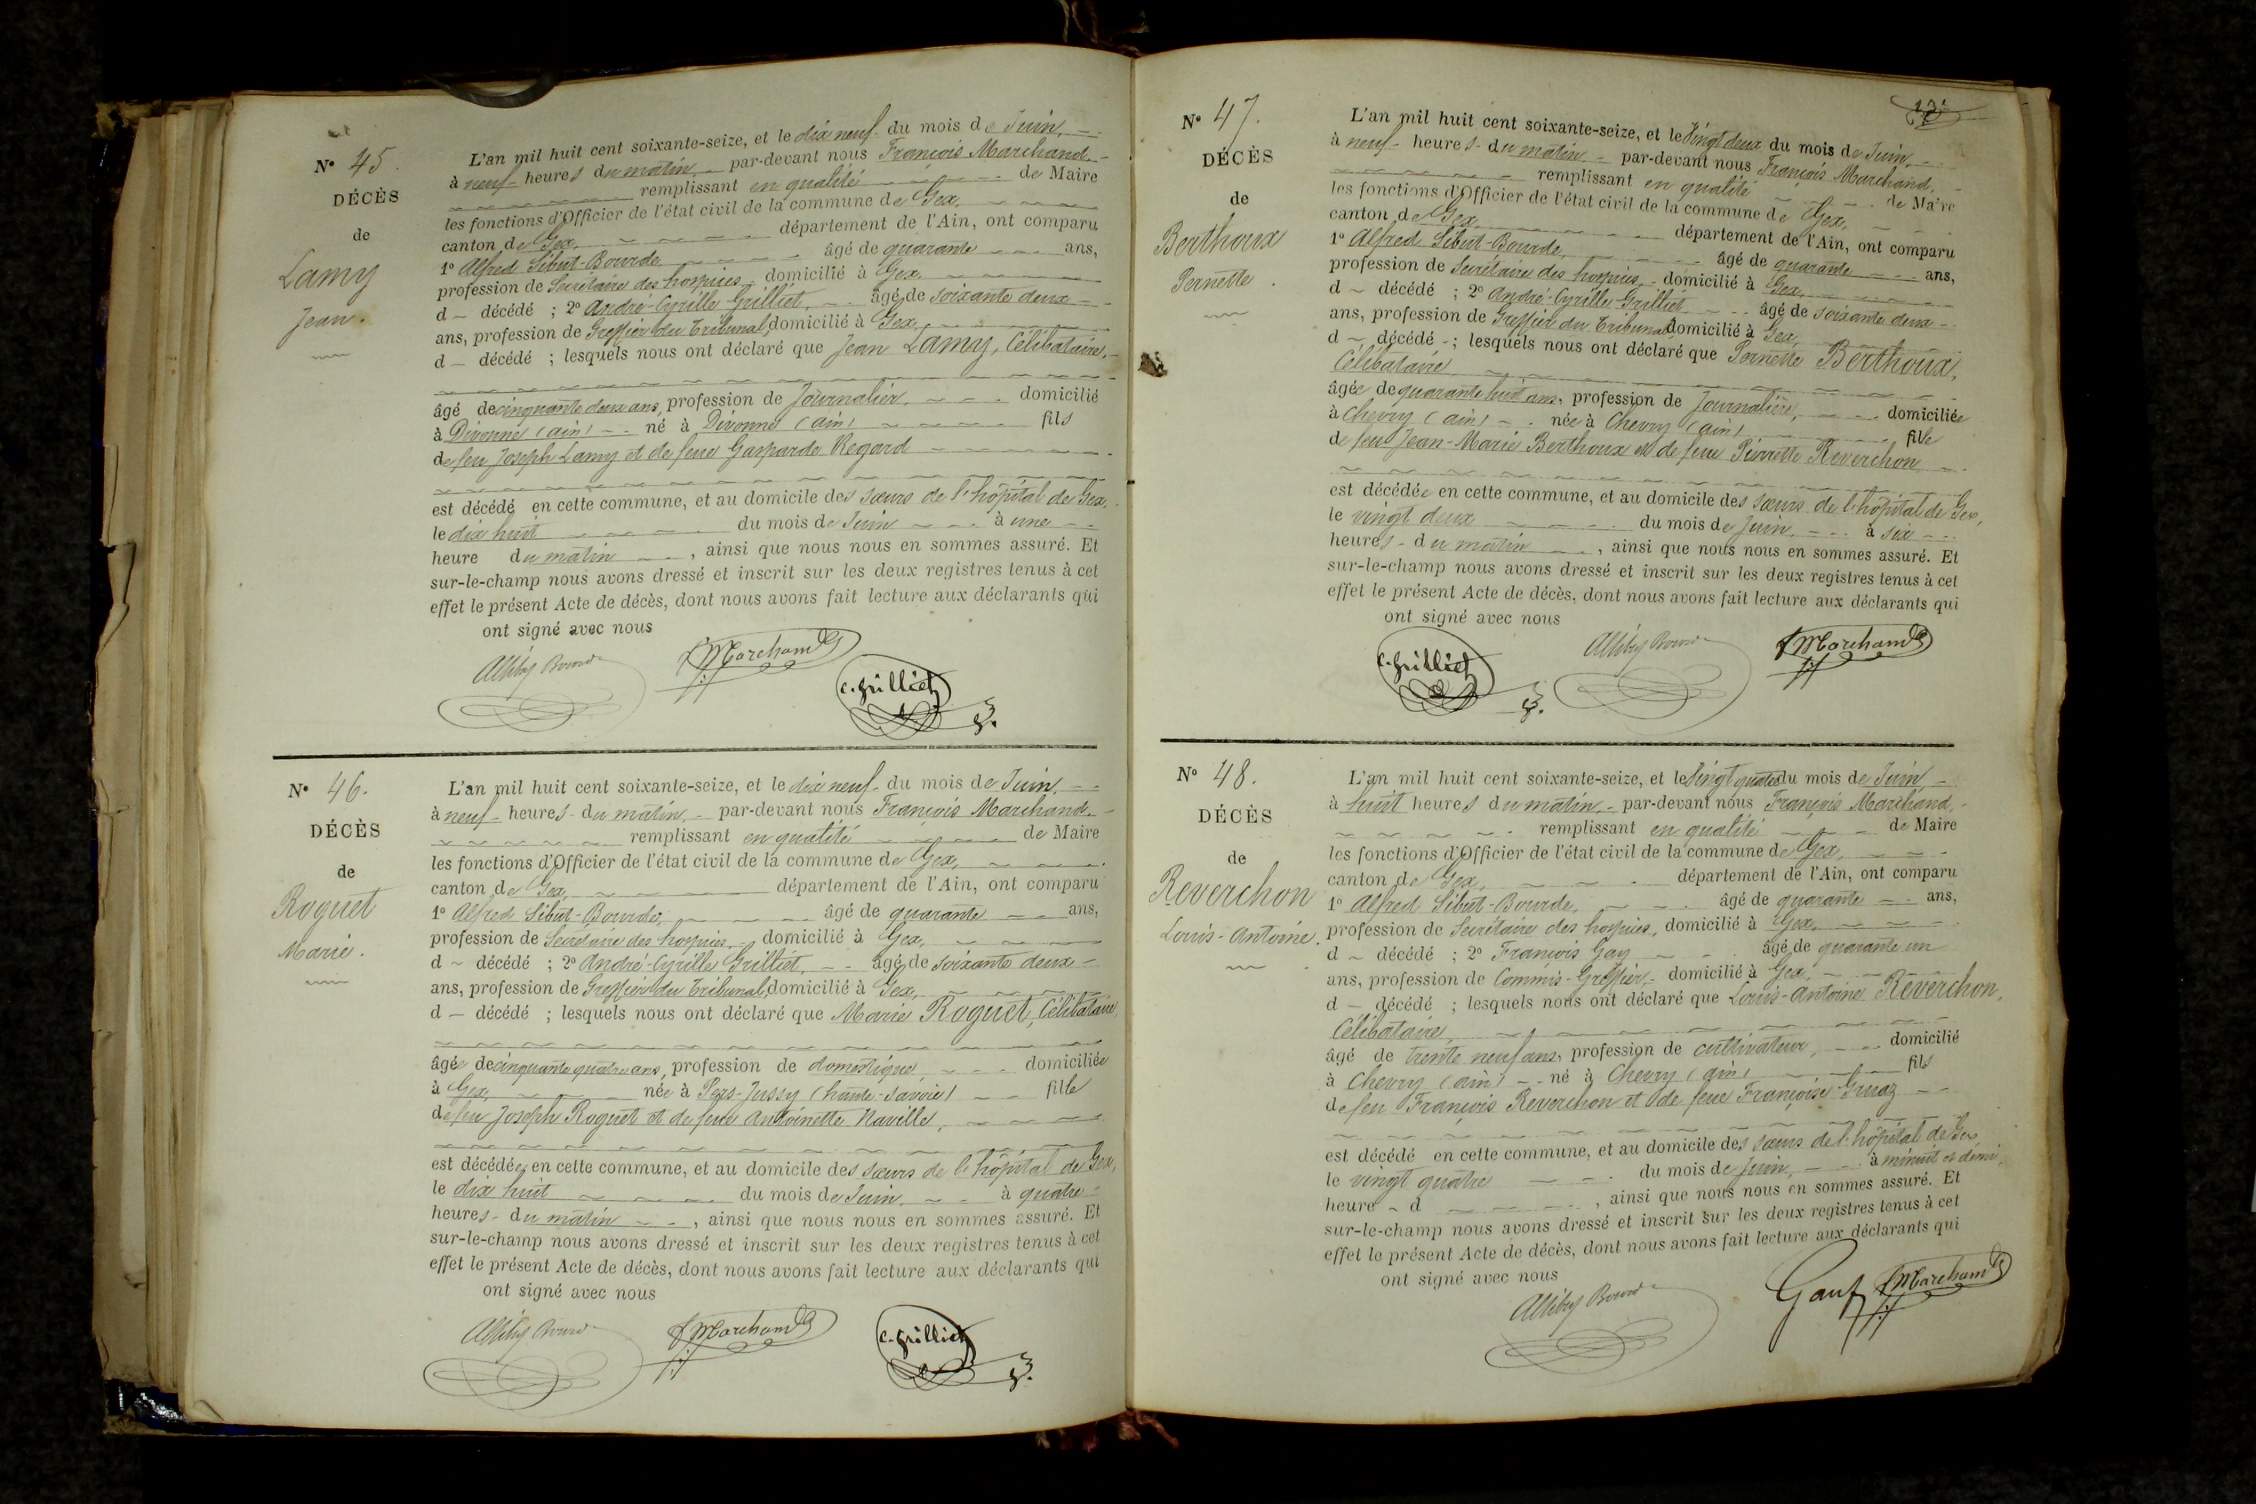 N° 45.
DÉCÈS
de
Lamy
Jean.
L'an mil huit cent soixante-seize, et le dix neuf du mois de Juin,
à neuf heures du matin, par-devant nous François Marchand
remplissant en qualité de Maire
les fonctions d'Officier de l'état civil de la commune de Gex,
canton de Gex, département de l'Ain, ont comparu
1° Alfred Sibut-Bourde, âgé de quarante ans,
profession de Secrétaire des hospices, domicilié à Gex,
d décédé ; 2° André-Cyrille Grilliet, âgé de soixante deux
ans, profession de Greffier du Tribunal, domicilié à Gex,
d décédé ; lesquels nous ont déclaré que Jean Lamy, Célibataire,
âgé de cinquante deux ans, profession de Journalier, domicilié
à Divonne (ain) né à Divonne (ain) fils
de feu Joseph Lamy et de feue Gasparde Regard
est décédé en cette commune, et au domicile des sœurs de l'hôpital de Gex,
le dix huit du mois de Juin à une
heure du matin, ainsi que nous nous en sommes assuré. Et
sur-le-champ nous avons dressé et inscrit sur les deux registres tenus à cet
effet le présent Acte de décès, dont nous avons fait lecture aux déclarants qui
ont signé avec nous
F Marchand
C. Grilliet
N° 46.
DÉCÈS
de
Roguet
Marie.
L'an mil huit cent soixante-seize, et le dix neuf du mois de Juin,
à neuf heures du matin, par-devant nous François Marchand
remplissant en qualité de Maire
les fonctions d'Officier de l'état civil de la commune de Gex,
canton de Gex, département de l'Ain, ont comparu
1° Alfred Sibut-Bourde, âgé de quarante ans,
profession de Secrétaire des hospices, domicilié à Gex,
d décédé ; 2° André-Cyrille Grilliet, âgé de soixante deux
ans, profession de Greffier du Tribunal, domicilié à Gex,
d décédé ; lesquels nous ont déclaré que Marie Roguet, Célibataire,
âgée de cinquante quatre ans, profession de domestique, domiciliée
à Gex, née à Pers-Jussy (haute-Savoie) fille
de feu Joseph Roguet et de feue Antoinette Naville,
est décédée en cette commune, et au domicile des sœurs de l'hôpital de Gex,
le dix huit du mois de Juin, à quatre
heures du matin, ainsi que nous nous en sommes assuré. Et
sur-le-champ nous avons dressé et inscrit sur les deux registres tenus à cet
effet le présent Acte de décès, dont nous avons fait lecture aux déclarants qui
ont signé avec nous
F Marchand
C. Grilliet
N° 47.
DÉCÈS
de
Berthoux
Pernette.
L'an mil huit cent soixante-seize, et le Vingt deux du mois de Juin,
à neuf heures du matin par-devant nous François Marchand,
remplissant en qualité de Maire
les fonctions d'Officier de l'état civil de la commune de Gex,
canton de Gex, département de l'Ain, ont comparu
1° Alfred Sibut-Bourde, âgé de quarante ans,
profession de Secrétaire des hospices, domicilié à Gex,
d décédé ; 2° André-Cyrille Grilliet, âgé de soixante deux
ans, profession de Greffier du Tribunal domicilié à Gex,
d décédé ; lesquels nous ont déclaré que Pernette Berthoux,
Célibataire
âgée de quarante huit ans, profession de Journalière, domiciliée
à Chevry (ain) née à Chevry (ain) fille
de feu Jean-Marie Berthoux et de feue Pierrette Reverchon
est décédée en cette commune, et au domicile des sœurs de l'hôpital de Gex,
le vingt deux du mois de Juin, à six
heures du matin, ainsi que nous nous en sommes assuré. Et
sur-le-champ nous avons dressé et inscrit sur les deux registres tenus à cet
effet le présent Acte de décès, dont nous avons fait lecture aux déclarants qui
ont signé avec nous
C. Grilliet
F Marchand
N° 48.
DÉCÈS
de
Reverchon
Louis-Antoine.
L'an mil huit cent soixante-seize, et le Vingt quatre du mois de Juin,
à huit heures du matin, par-devant nous François Marchand,
remplissant en qualité de Maire
les fonctions d'Officier de l'état civil de la commune de Gex,
canton de Gex, département de l'Ain, ont comparu
1° Alfred Sibut-Bourde, âgé de quarante ans,
profession de Secrétaire des hospices, domicilié à Gex,
d décédé ; 2° François Gay âgé de quarante un
ans, profession de Commis-Greffier, domicilié à Gex,
d décédé ; lesquels nous ont déclaré que Louis-Antoine Reverchon,
Célibataire,
âgé de trente neuf ans, profession de cultivateur, domicilié
à Chevry (ain) né à Chevry (ain) fils
de feu François Reverchon et de feue Françoise Gruaz
est décédé en cette commune, et au domicile des sœurs de l'hôpital de Gex,
le vingt quatre du mois de Juin, à minuit et demi,
heure d , ainsi que nous nous en sommes assuré. Et
sur-le-champ nous avons dressé et inscrit sur les deux registres tenus à cet
effet le présent Acte de décès, dont nous avons fait lecture aux déclarants qui
ont signé avec nous
F Marchand